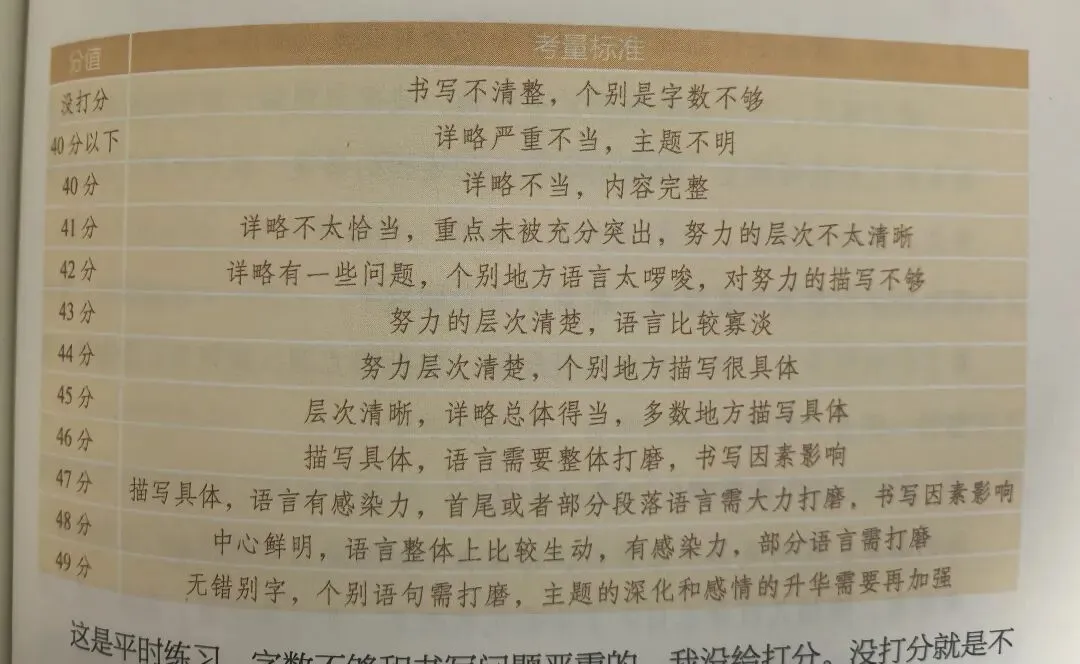 分值 考量标准
没打分 书写不清整，个别是字数不够
40分以下 详略严重不当，主题不明
40分 详略不当，内容完整
41分 详略不太恰当，重点未被充分突出，努力的层次不太清晰
42分 详略有一些问题，个别地方语言太啰唆，对努力的描写不够
43分 努力的层次清楚，语言比较寡淡
44分 努力层次清楚，个别地方描写很具体
45分 层次清晰，详略总体得当，多数地方描写具体
46分 描写具体，语言需要整体打磨，书写因素影响
47分 描写具体，语言有感染力，首尾或者部分段落语言需大力打磨，书写因素影响
48分 中心鲜明，语言整体上比较生动，有感染力，部分语言需打磨
49分 无错别字，个别语句需打磨，主题的深化和感情的升华需要再加强
这是平时练习，字数不够和书写问题严重的，我没给打分。没打分就是不